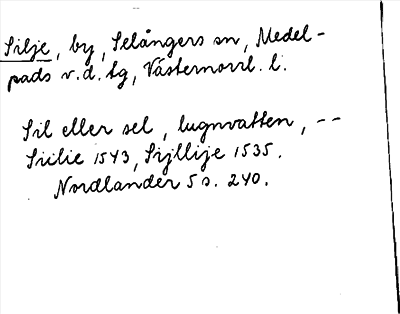 Silje, by, Selångers sn, Medel-
pads v.d. tg, Västernorrl. l.
Sil eller sel, lugnvatten, --
Siilie 1543, Sijllije 1535.
Nordlander 5 s. 240.